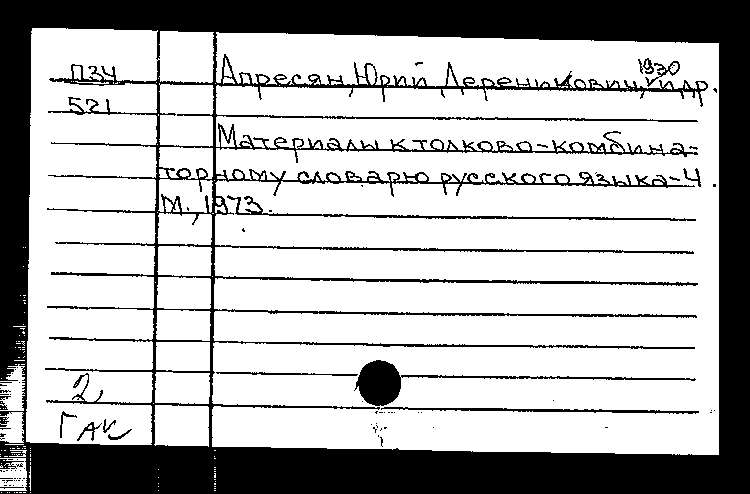 1930
П34 Апресян, Юрий Дереникович, и др.
521
Материалы к толково-комбина=
торному словарю русского языка-4.
М., 1973.
2
ГАК